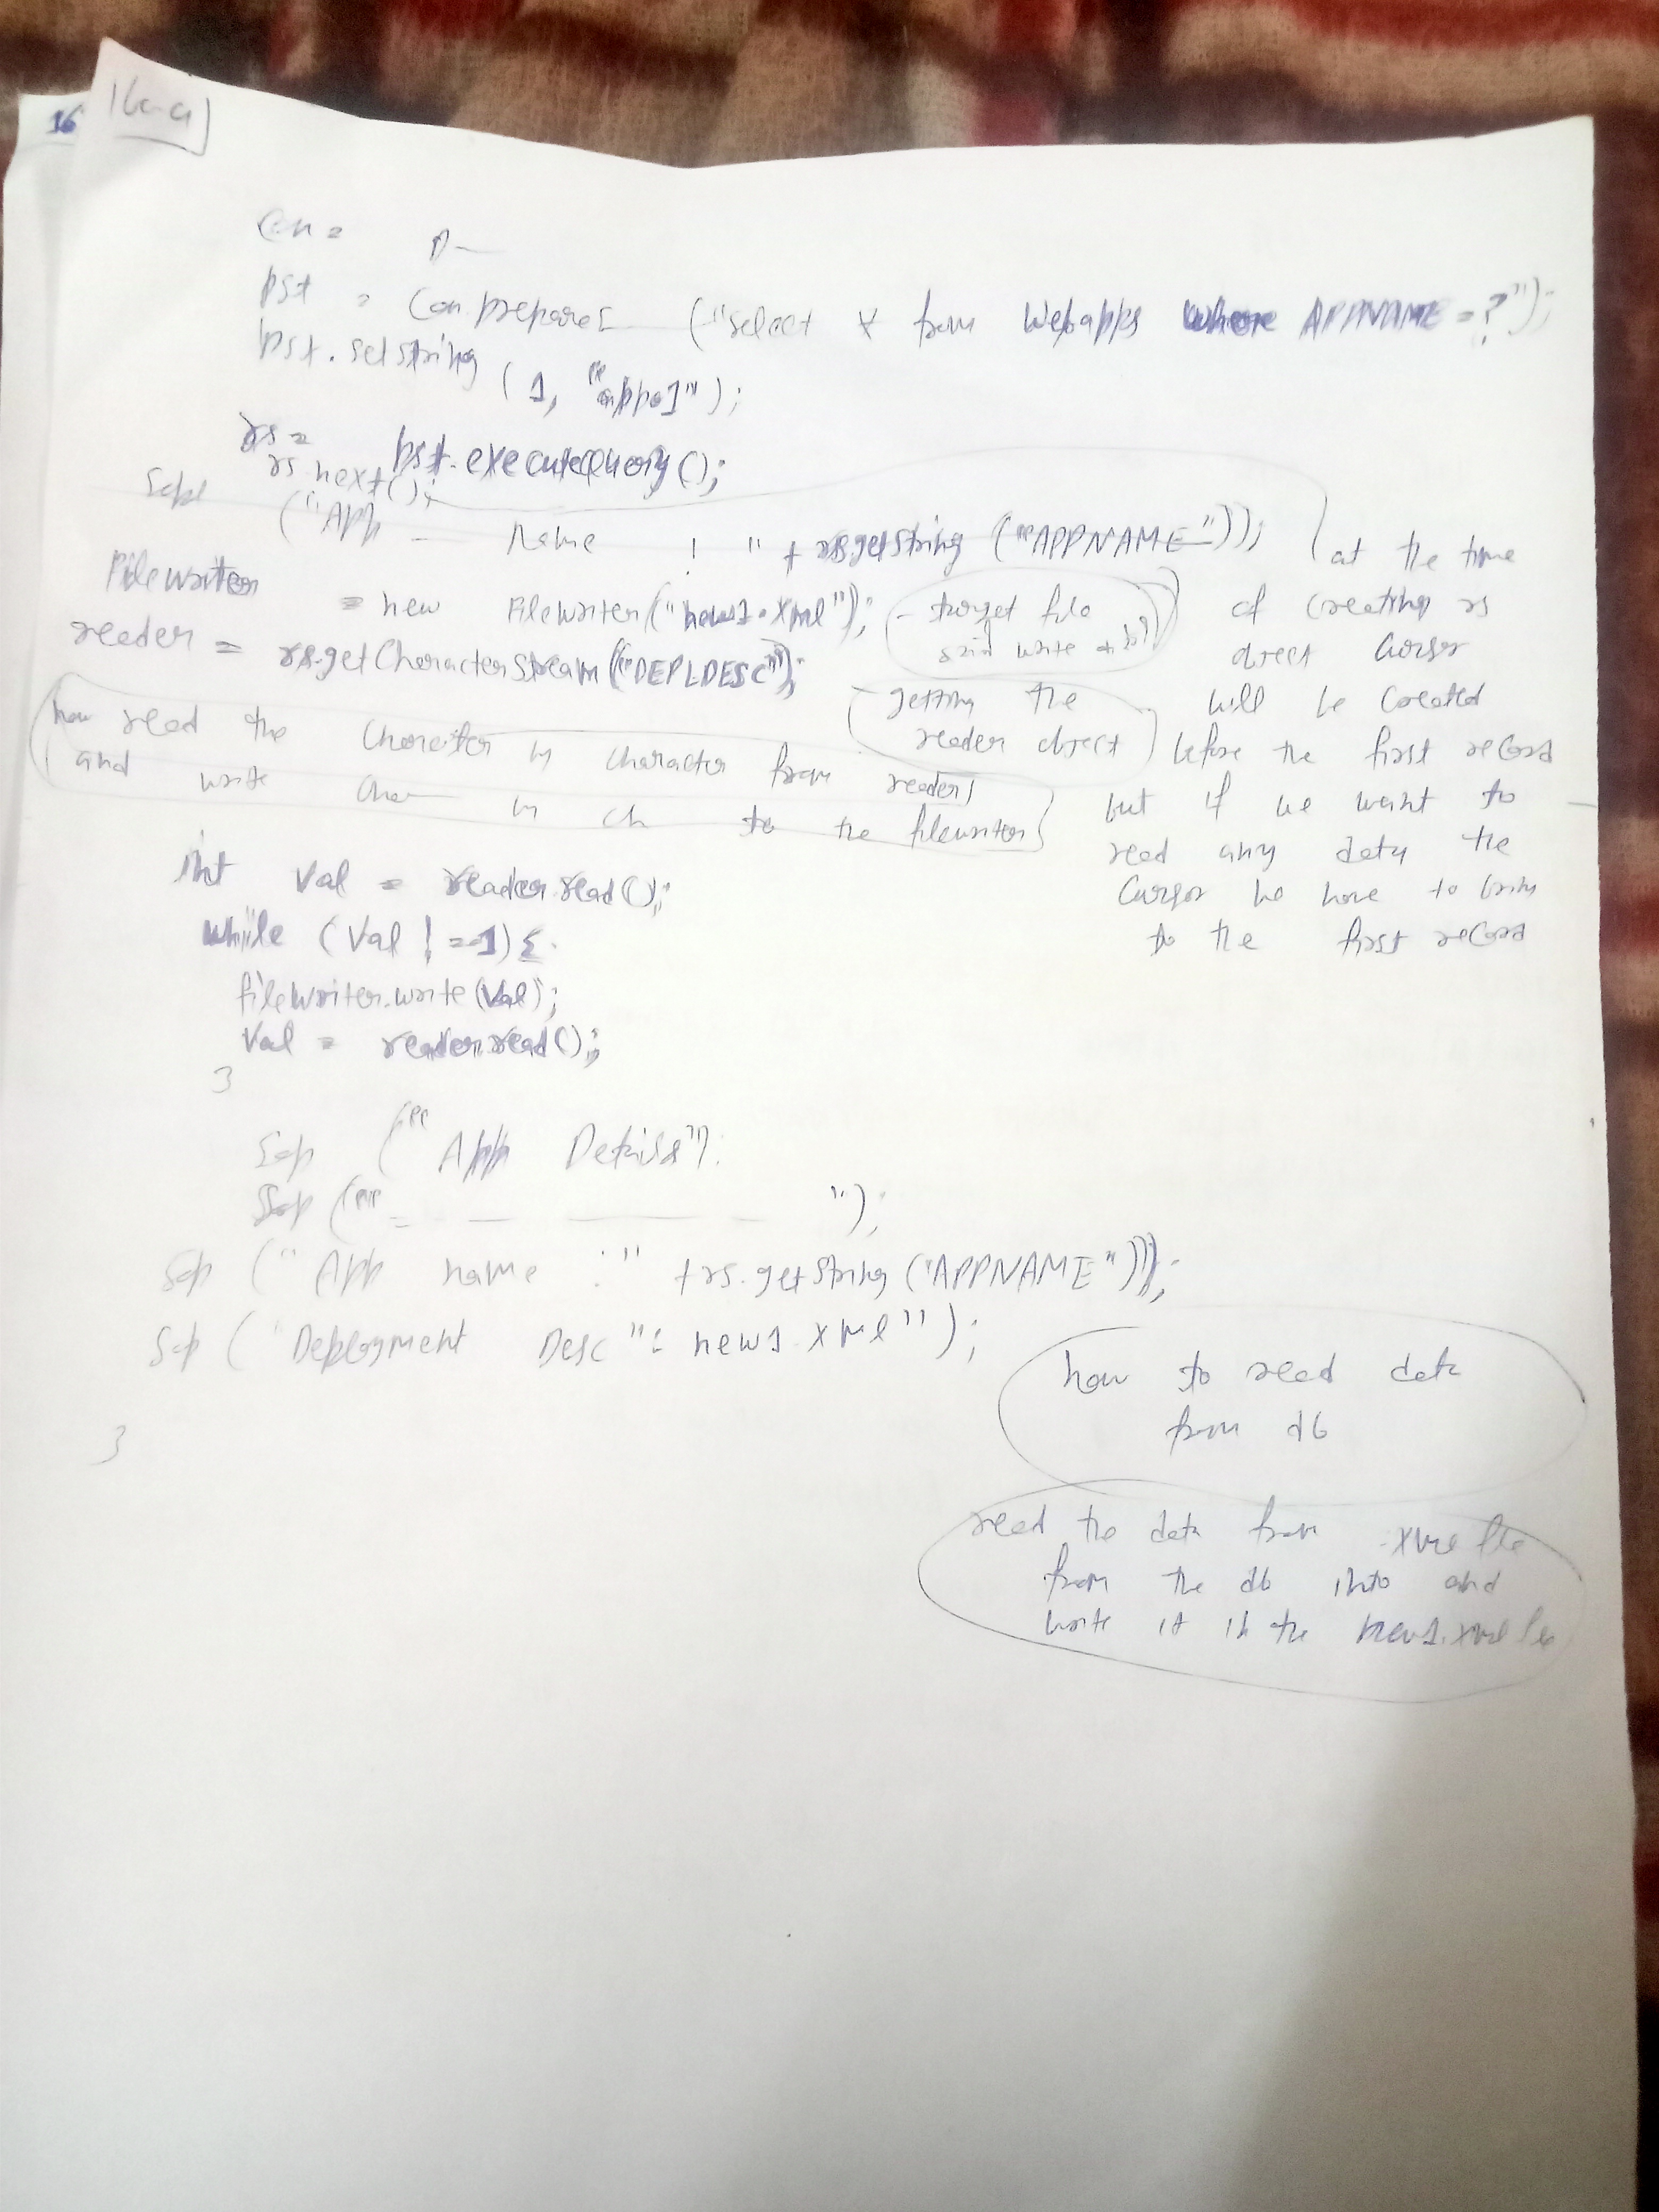 16
16-a
Con =
pst = Con.prepareS ("select * from webapps where APPNAME = ?");
pst.setString (1, "app01");
rs = pst.executeQuery();
rs.next();
Sop ("App name : " + rs.getString ("APPNAME"));
FileWriter = new FileWriter("new1.xml");
- target file
write
reader = rs.getCharacterStream("DEPLDESC");
getting the
reader object
now read the character by character from reader
and write cha by ch to the filewriter
at the time
of creating rs
object cursor
will be created
before the first record
but if we want to
read any data the
cursor we have to bring
to the first record
int val = reader.read();
while (val != -1) {
fileWriter.write(val);
val = reader.read();
}
Sop ("App Details");
Sop ("= - - - - ");
Sop ("App name :" + rs.getString ("APPNAME"));
Sop ("Deployment Desc": new1.xml");
}
how to read data
from db
read the data from .xml file
from the db into and
write it in the new1.xml file